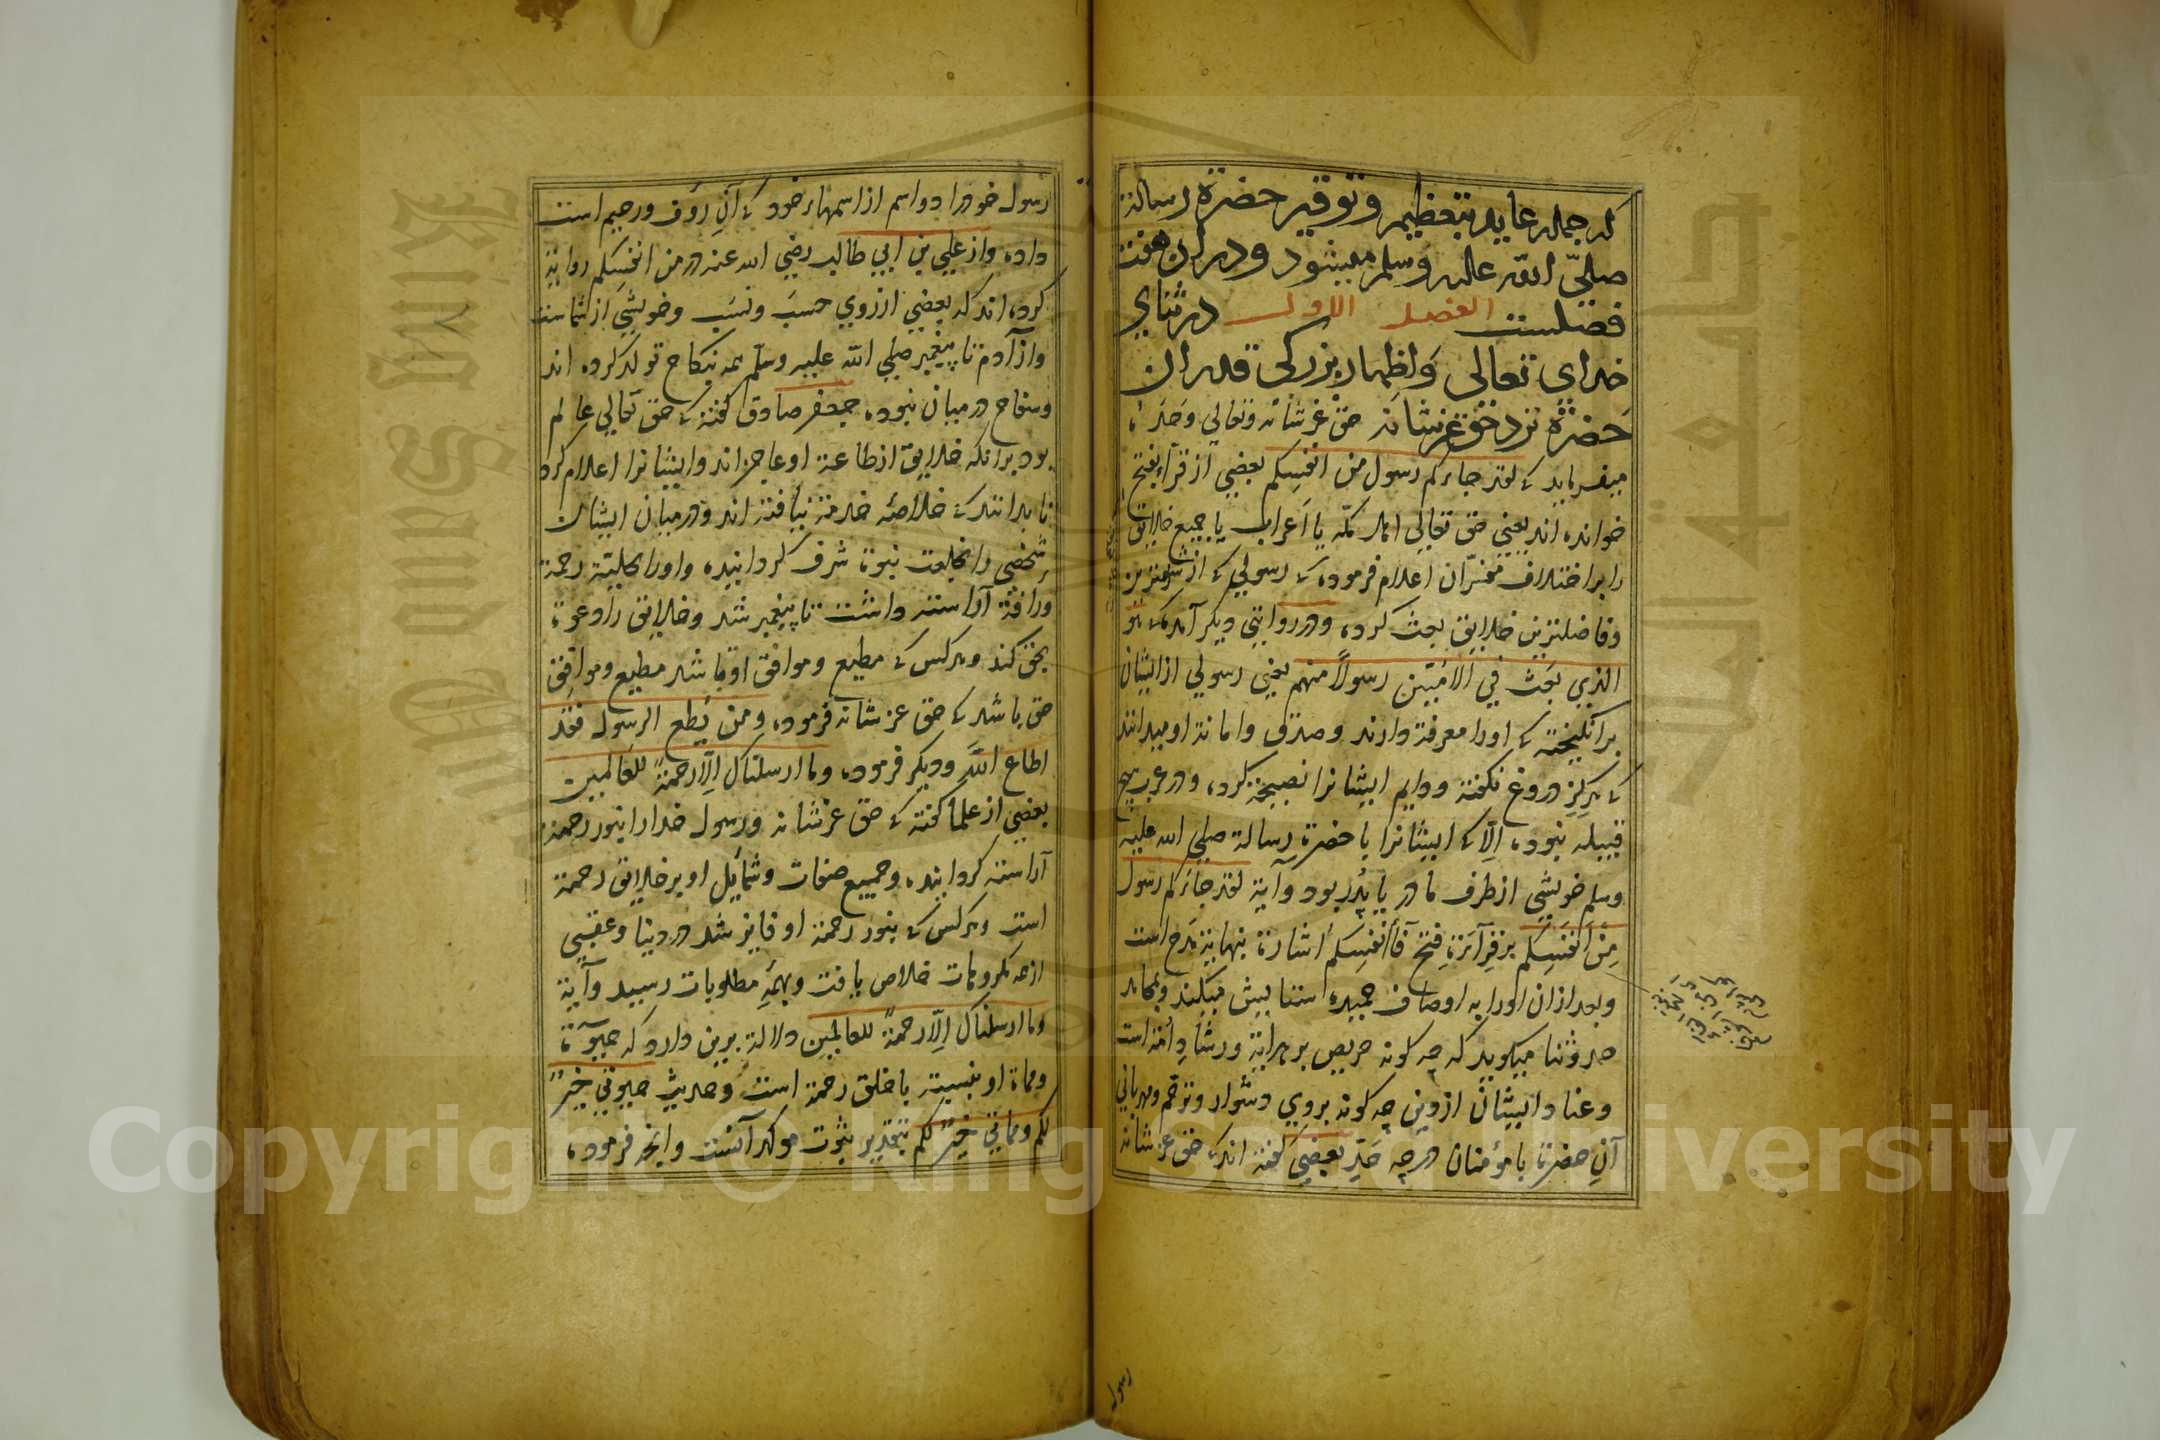 که جمله عاید بتعظیم و توقیر حضرة رسالة
صلّی الله علیه وسلم میشود ودران هفت
فصلست الفصل الاول در ثنای
خدای تعالی و اظهار بزرکی قدر ان
حضرة نزد حق عزشانه حق عزشانه وتعالی وحده
میفرماید که لقد جاءکم رسول من انفسکم بعضی از قراء بفتح
خوانده اند یعنی حق تعالی اهل مکّه یا اعراب یا جمیع خلایق
را بر اختلاف مفسّران اعلام فرموده که رسولی که از شریفترین
وفاضلترین خلایق بعث کرده ودر روایتی دیکر آمده که هو
الذی بعث فی الامّیّین رسولاً منهم یعنی رسولی از ایشان
برانکیخته که اورا معرفة دارند وصدق وامانة او میدانند
که هرکز دروغ نکفته ودایم ایشانرا نصیحة کرده ودر عرب هیچ
قبیله نبوده الّا که ایشانرا با حضرة رسالة صلی الله علیه
وسلم خویشی از طرف مادر یا پدر بود وآیة لقد جاءکم رسول
مِن اَنفَسِکم بر قرآءة فتح فاأنفسکم اشارة بنهایة مدح است
وبعد ازان اورا به اوصاف حمیده استنا بیش میکند وبمحامد
صد وثنا میکوید که چه کونه حریص بر هدایة ورشاد امّة است
وعنا دایشان از دین چه کونه بروی دشوار وترحّم ومهربانی
آن حضرة با مؤمنان در چه حدّ بعضی کفته اند که حق عزشانه
رسول
رسول خودرا دو اسم از اسمهاء خود که آن رؤف ورحیم است
داده واز علی بن ابی طالب رضی الله عنه در من انفسکم روایة
کرده اند که بعضی از روی حسَب ونسَب وخویشی از شماست
واز آدم تا پیغمبر صلی الله علیه وسلم همه بنکاح تولد کرده اند
وسفاح در میان نبوده جعفر صادق کفته که حق تعالی عالم
بود بر انکه خلایق از طاعة او عاجز اند وایشانرا اعلام کرد
تا بدانند که خلاصه خدمة نیافته اند ودر میان ایشان
شخصی را بخلعت نبوة شرف کردانیده واورا بحلیة رحمة
ورافة آراسته داشت تا پیغمبر شد وخلایق را دعوة
بحق کند وهرکس که مطیع وموافق اوباشد مطیع وموافق
حق باشد که حق عز شانه فرموده ومن یُطع الرسول فقد
اطاع اللهَ ودیکر فرموده وما ارسلناک الّا رحمةً للعالمین
بعضی از علما کفته که حق عزشانه ورسول خدارا بنور رحمة
آراسته کردانیده وجمیع صفات وشمایل او بر خلایق رحمة
است وهرکس که بنور رحمة او فایز شد در دنیا وعقبی
از مه مکروهات خلاص یافت وبهمه مطلوبات رسید وآیة
وما ارسلناک الّا رحمةً للعالمین دلالة برین دارد که حیوٰة
ومماة او بنسبت باخلق رحمة است وحدیث حیوتی خیرٌ
لکم ومماتی خیرٌ لکم بتقدیر ثبوت موکد آنست وانچه فرموده
Copyright © King Saud University
King Saud University